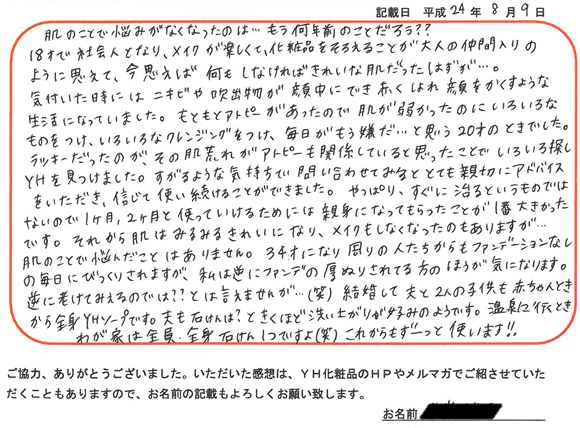 記載日 平成 24年 8月 9日
肌のことで悩みがなくなったのは…もう何年前のことだろう??
18才で社会人となり、メイクが楽しくて、化粧品をそろえることが大人の仲間入りの
ように思えて、今思えば何もしなければきれいな肌だったはずが…。
気付いた時にはニキビや吹出物が顔中にでき赤くはれ顔をかくすような
生活になっていました。もともとアトピーがあったので肌が弱かったのにいろいろな
ものをつけ、いろいろなクレンジングをつけ、毎日がもう嫌だ…と思う20才のときでした。
ラッキーだったのが、その肌荒れがアトピーも関係していると思ったことでいろいろ探し
YHを見つけました。すがるような気持ちで問い合わせてみるととても親切にアドバイス
をいただき、信じて使い続けることができました。やっぱり、すぐに治るというものでは
ないので1ヶ月,2ヶ月と使っていけるためには親身になってもらったことが1番大きかった
です。それから肌はみるみるきれいになり、メイクもしなくなったのもありますが…
肌のことで悩んだことはありません。34才になり周りの人たちからもファンデーションなし
の毎日にびっくりされますが、私は逆にファンデの厚ぬりされてる方のほうが気になります。
逆に老けてみえるのでは??とは言えませんが…(笑) 結婚して夫と2人の子供も赤ちゃんとき
から全身YHソープです。夫も石けんは?ときくほど洗い上がりが好みのようです。温泉に行くとき
わが家は全員・全身石けん1つですよ(笑) これからもずーっと使います!!
ご協力、ありがとうございました。いただいた感想は、YH化粧品のHPやメルマガでご紹させていた
だくこともありますので、お名前の記載もよろしくお願い致します。
お名前